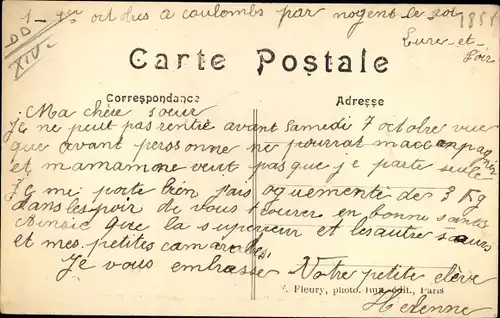 1er octobres a coulombs par nogent le roi
Eure-et-Loir
DD
XIV
Carte Postale
Correspondance
Adresse
Ma chère soeur
Je ne peut pas rentré avant Samedi 7 octobre vue
que avant personne ne pourrat maccompagner
et mamamone veut pas que je parte seule
Je me porte bien jais oguementé de 3 Kg
dans lespoir de vous trouver en bonne santé
Ainsie que la superieur et les autre sœurs
et mes petites camarades.
Je vous embrasse Notre petite elève
Helenne
E. Fleury, photo.-imp.-édit., Paris